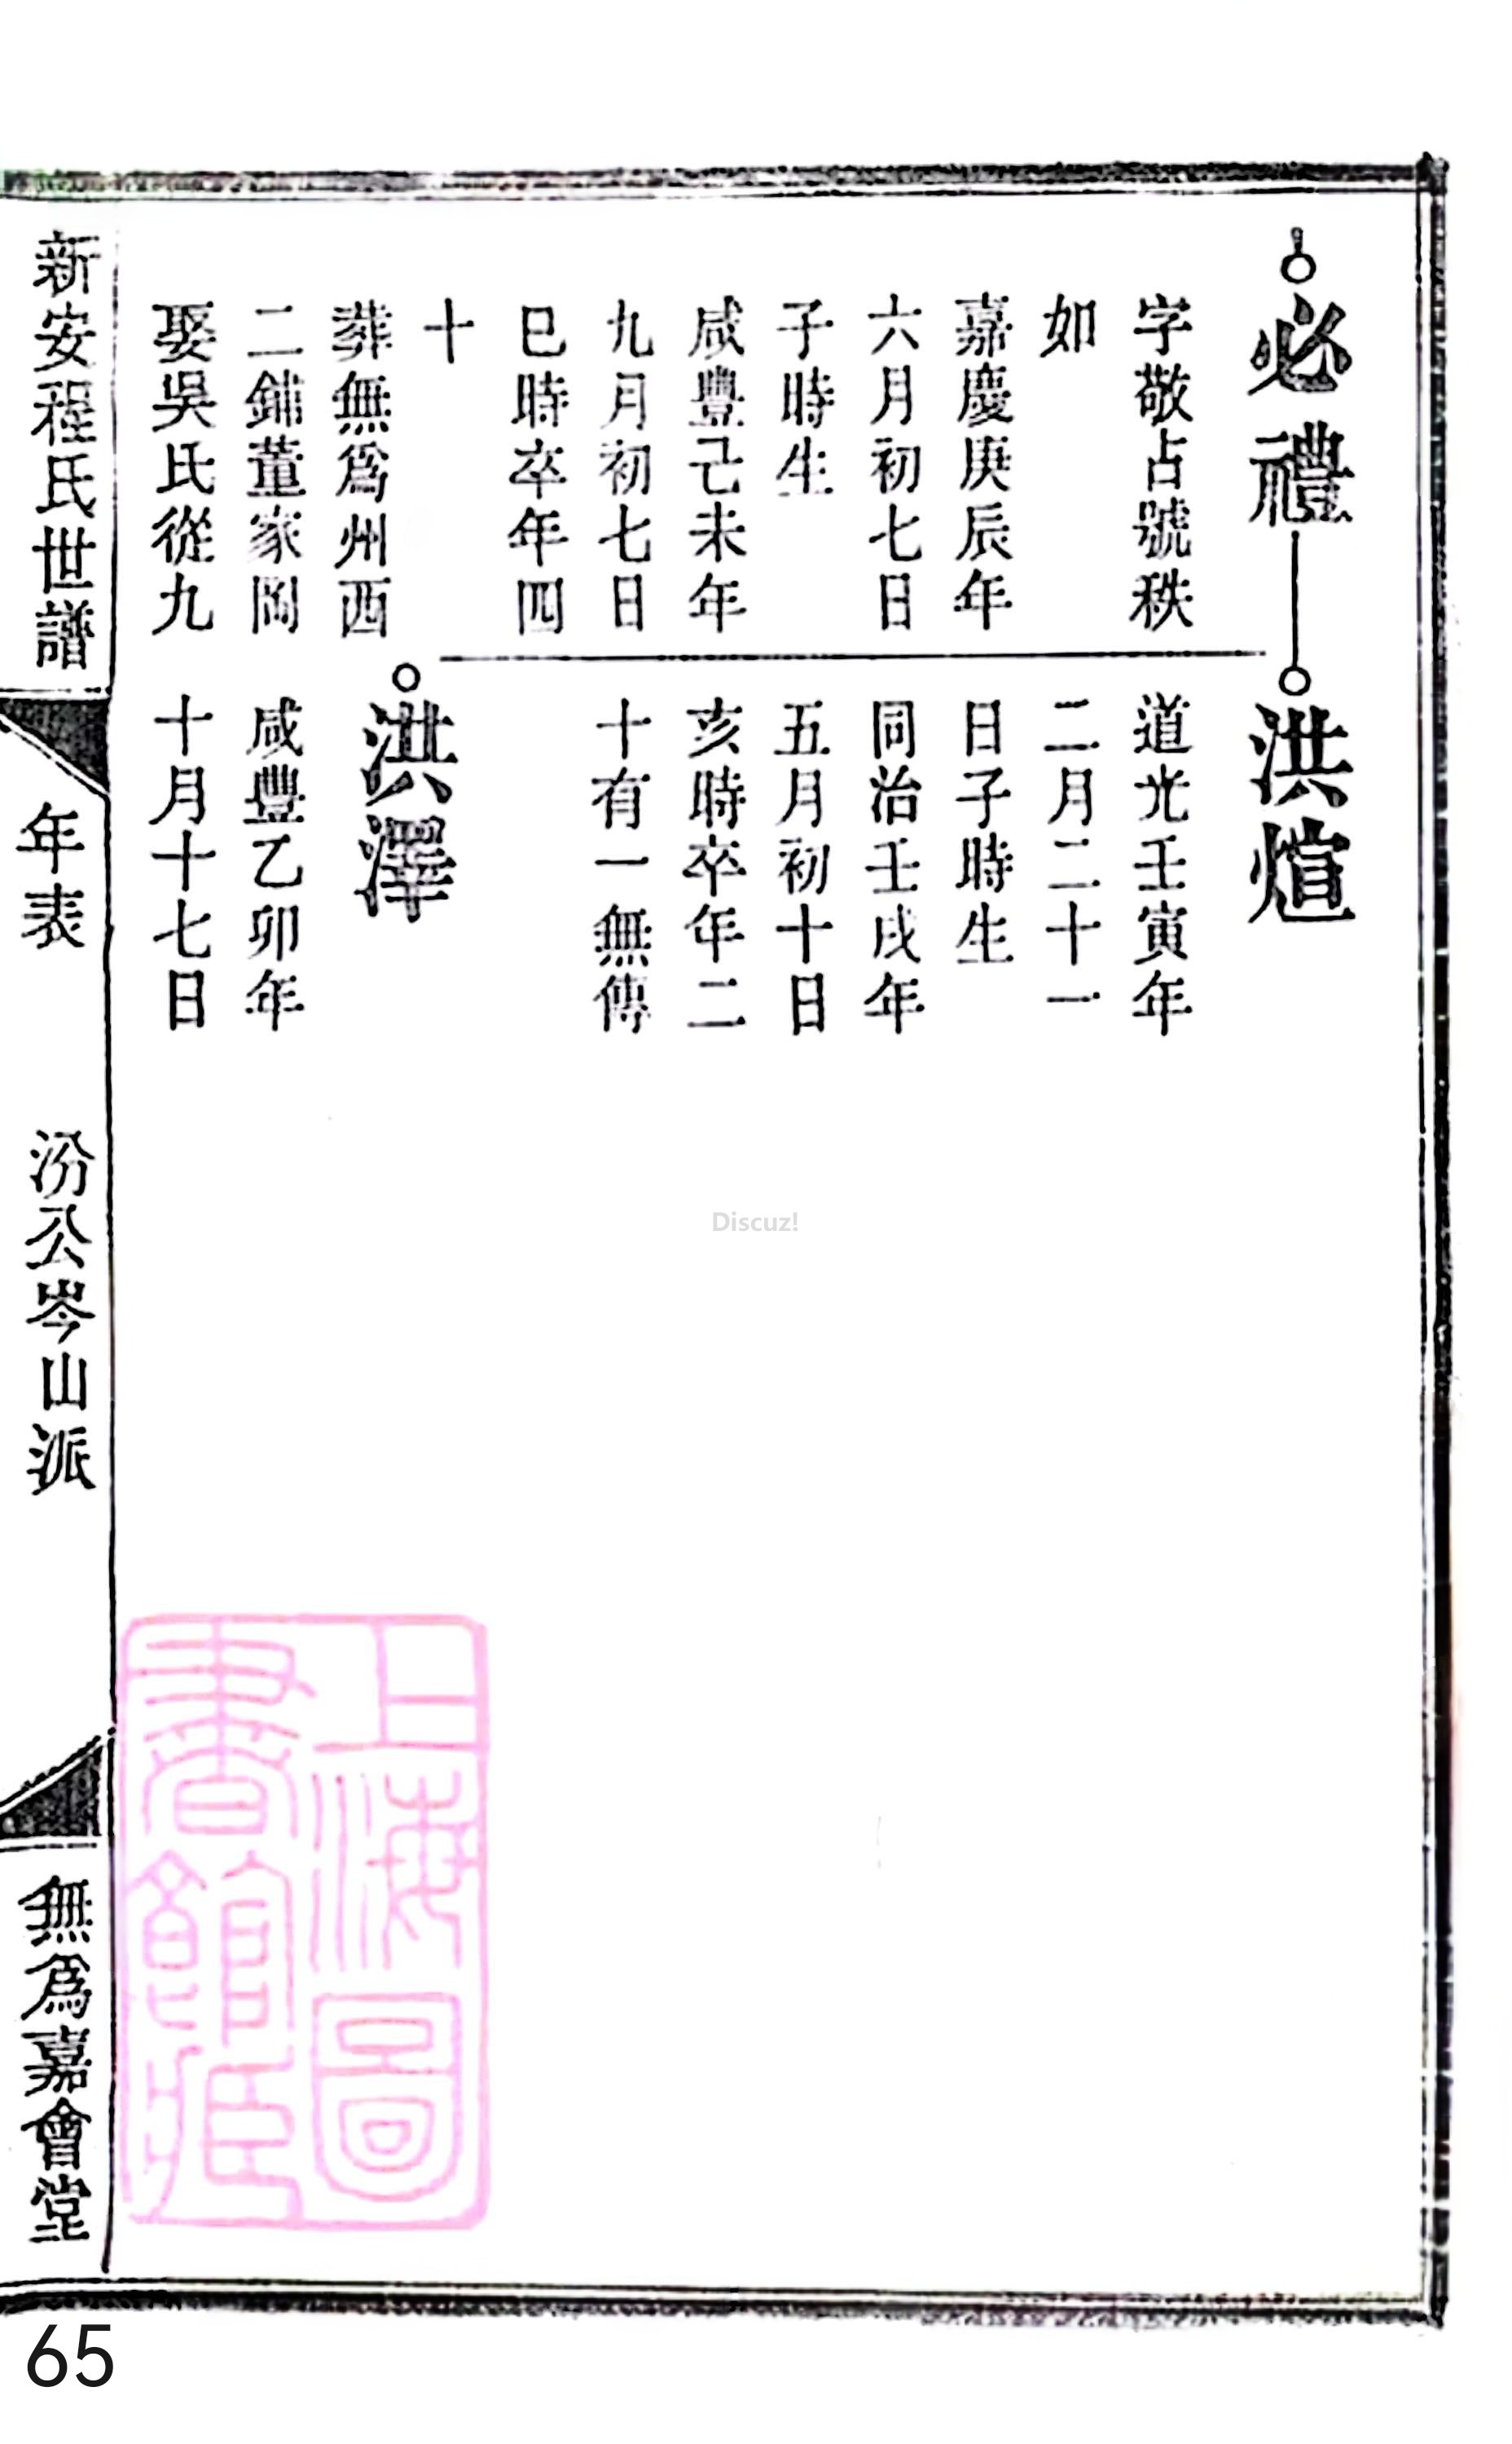 必禮
字敬占號秩
如
嘉慶庚辰年
六月初七日
子時生
咸豐己未年
九月初七日
巳時卒年四
十
葬無爲州西
二鋪董家岡
娶吳氏從九
洪愃
道光壬寅年
二月二十一
日子時生
同治壬戌年
五月初十日
亥時卒年二
十有一無傳
洪澤
咸豐乙卯年
十月十七日
新安程氏世譜
年表
汾公岑山派
無爲嘉會堂
上海圖
書館藏
Discuz!
65